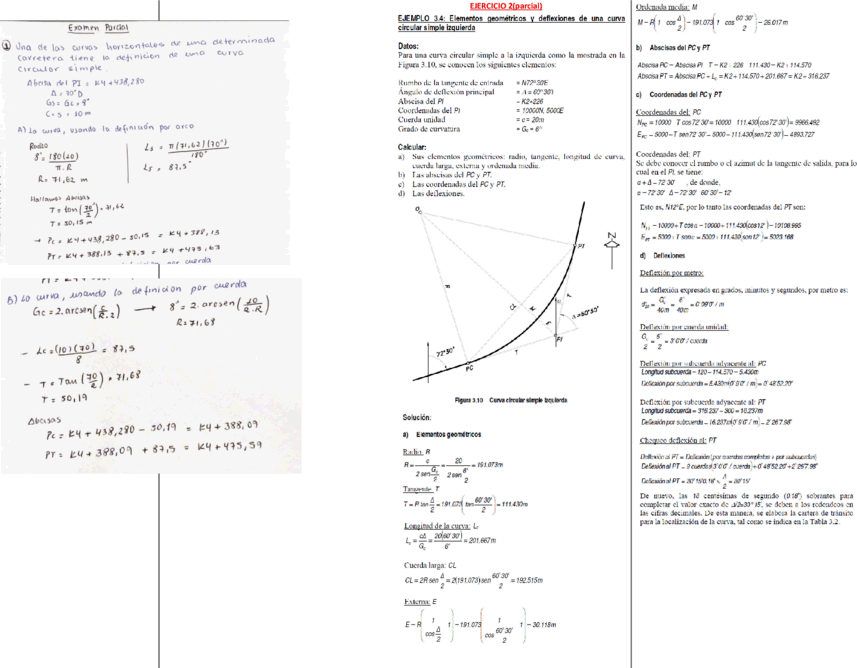 Examen Parcial
① Una de las curvas horizontales de una determinada
carretera tiene la definición de una curva
circular simple.
Abcisa del PI = K4+438,280
Δ = 70°D
Gs = Gc = 8°
C = s = 10 m
A) La curva, usando la definición por arco
Radio
8° = 180(10) / π.R
R = 71,62 m
Ls = π(71,62)(70°) / 180°
Ls = 87,5
Hallamos Abcisas
T = tan(70/2) * 71,62
T = 50,15 m
→ Pc = K4+438,280 - 50,15 = K4+388,13
PT = K4+388,13 + 87,5 = K4+475,63
B) La curva, usando la definicion por cuerda
Gc = 2.arcsen(c/R.2) → 8° = 2.arcsen(10/2.R)
R = 71,68
- Lc = (10)(70)/8 = 87,5
- T = Tan(70/2) * 71,68
T = 50,19
Abcisas
Pc = K4 + 438,280 - 50,19 = K4 + 388,09
PT = K4 + 388,09 + 87,5 = K4 + 475,59
EJERCICIO 2(parcial)
EJEMPLO 3.4: Elementos geométricos y deflexiones de una curva
circular simple izquierda
Datos:
Para una curva circular simple a la izquierda como la mostrada en la
Figura 3.10, se conocen los siguientes elementos:
Rumbo de la tangente de entrada = N72°30'E
Ángulo de deflexión principal = Δ = 60°30'I
Abscisa del PI = K2+226
Coordenadas del PI = 10000N, 5000E
Cuerda unidad = c = 20m
Grado de curvatura = Gc = 6°
Calcular:
a) Sus elementos geométricos: radio, tangente, longitud de curva,
cuerda larga, externa y ordenada media.
b) Las abscisas del PC y PT.
c) Las coordenadas del PC y PT.
d) Las deflexiones.
N
PT
CL
M
R
T
E
Δ=60°30'
PI
72°30'
PC
T
Figura 3.10 Curva circular simple izquierda
Solución:
a) Elementos geométricos
Radio: R
R = c / 2 sen Gc/2 = 20 / 2 sen 6°/2 = 191.073m
Tangente: T
T = R tan Δ/2 = 191.073(tan 60°30'/2) = 111.430m
Longitud de la curva: Lc
Lc = cΔ/Gc = 20(60°30')/6° = 201.667m
Cuerda larga: CL
CL = 2R sen Δ/2 = 2(191.073) sen 60°30'/2 = 192.515m
Externa: E
E = R(1/cos Δ/2 1) = 191.073(1/cos 60°30'/2 1) = 30.118m
Ordenada media: M
M = R(1 cos Δ/2) = 191.073(1 cos 60°30'/2) = 26.017m
b) Abscisas del PC y PT
Abscisa PC = Abscisa PI T = K2 + 226 111.430 = K2 + 114.570
Abscisa PT = Abscisa PC + Lc = K2 + 114.570 + 201.667 = K2 + 316.237
c) Coordenadas del PC y PT
Coordenadas del: PC
NPC = 10000 T cos72°30' = 10000 111.430(cos72°30') = 9966.492
EPC = 5000 T sen72°30' = 5000 111.430(sen72°30') = 4893.727
Coordenadas del: PT
Se debe conocer el rumbo o el azimut de la tangente de salida, para lo
cual en el PI, se tiene:
α + Δ = 72°30' , de donde,
α = 72°30' Δ = 72°30' 60°30' = 12°
Esto es, N12°E, por lo tanto las coordenadas del PT son:
NPT = 10000 + T cos α = 10000 + 111.430(cos12°) = 10108.995
EPT = 5000 + T senα = 5000 + 111.430(sen12°) = 5023.168
d) Deflexiones
Deflexión por metro:
La deflexión expresada en grados, minutos y segundos, por metro es:
d°m = G°c/40m = 6°/40m = 0°09'0" / m
Deflexión por cuerda unidad:
G°c/2 = 6°/2 = 3°0'0" / cuerda
Deflexión por subcuerda adyacente al: PC
Longitud subcuerda = 120 – 114.570 = 5.430m
Deflexión por subcuerda = 5.430m(0°9'0" / m) = 0°48'52.20"
Deflexión por subcuerda adyacente al: PT
Longitud subcuerda = 316.237 – 300 = 16.237m
Deflexión por subcuerda = 16.237m(0°9'0" / m) = 2°26'7.98"
Chequeo deflexión al: PT
Deflexión al PT = Deflexión (por cuerdas completas + por subcuerdas)
Deflexión al PT = 9 cuerdas(3°0'0" / cuerda) + 0°48'52.20" + 2°26'7.98"
Deflexión al PT = 30°15'0.18" ≈ Δ/2 = 30°15'
De nuevo, las 18 centésimas de segundo (0.18") sobrantes para
completar el valor exacto de Δ/2=30°15', se deben a los redondeos en
las cifras decimales. De esta manera, se elabora la cartera de tránsito
para la localización de la curva, tal como se indica en la Tabla 3.2.